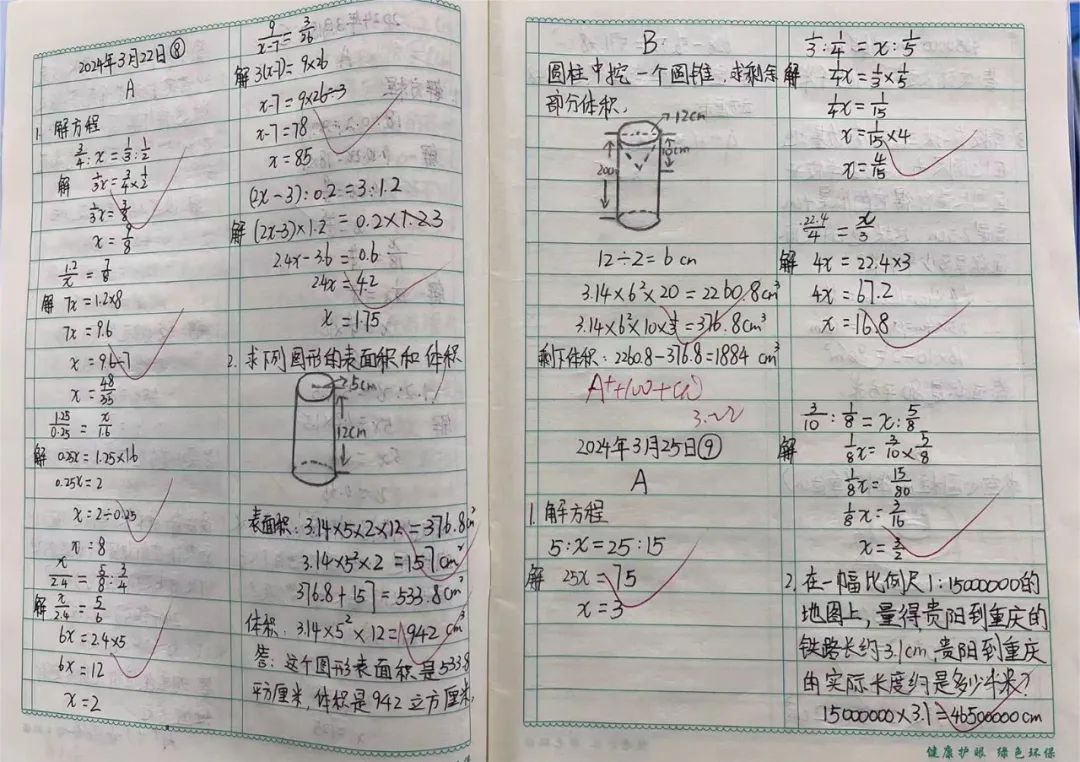 2024年3月22日⑧
A
1. 解方程
3/4 : x = 1/3 : 1/2
解 1/3x = 3/4 × 1/2
1/3x = 3/8
x = 9/8
1.2/x = 7/8
解 7x = 1.2×8
7x = 9.6
x = 9.6÷7
x = 48/35
1.25/0.25 = x/1.6
解 0.25x = 1.25×1.6
0.25x = 2
x = 2÷0.25
x = 8
x/2.4 = 5/8 : 3/4
解 x/2.4 = 5/6
6x = 2.4×5
6x = 12
x = 2
9/x-7 = 3/26
解 3(x-7) = 9×26
x-7 = 9×26÷3
x-7 = 78
x = 85
(2x-3) : 0.2 = 3 : 1.2
解 (2x-3)×1.2 = 0.2×3
2.4x-3.6 = 0.6
2.4x = 4.2
x = 1.75
2. 求下列图形的表面积和体积
5cm
12cm
表面积: 3.14×5×2×12 = 376.8cm²
3.14×5²×2 = 157cm²
376.8+157 = 533.8cm²
体积: 3.14×5²×12 = 942cm³
答: 这个图形表面积是533.8
平方厘米, 体积是942立方厘米.
B
圆柱中挖一个圆锥, 求剩余
部分体积.
12cm
10cm
12÷2 = 6cm
3.14×6²×20 = 2260.8cm³
3.14×6²×10×1/3 = 376.8cm³
剩下体积: 2260.8-376.8=1884cm³
A++100+
3.22
2024年3月25日⑨
A
1. 解方程
5 : x = 25 : 15
解 25x = 75
x = 3
1/3 : 1/4 = x : 1/5
解 1/4x = 1/3 × 1/5
1/4x = 1/15
x = 1/15 × 4
x = 4/15
22.4/4 = x/3
解 4x = 22.4×3
4x = 67.2
x = 16.8
3/10 : 1/8 = x : 5/8
解 1/8x = 3/10 × 5/8
1/8x = 15/80
1/8x = 3/16
x = 3/2
2. 在一幅比例尺1:15000000的
地图上, 量得贵阳到重庆的
铁路长约3.1cm, 贵阳到重庆
的实际长度约是多少千米?
15000000×3.1=46500000cm
健康护眼 绿色环保